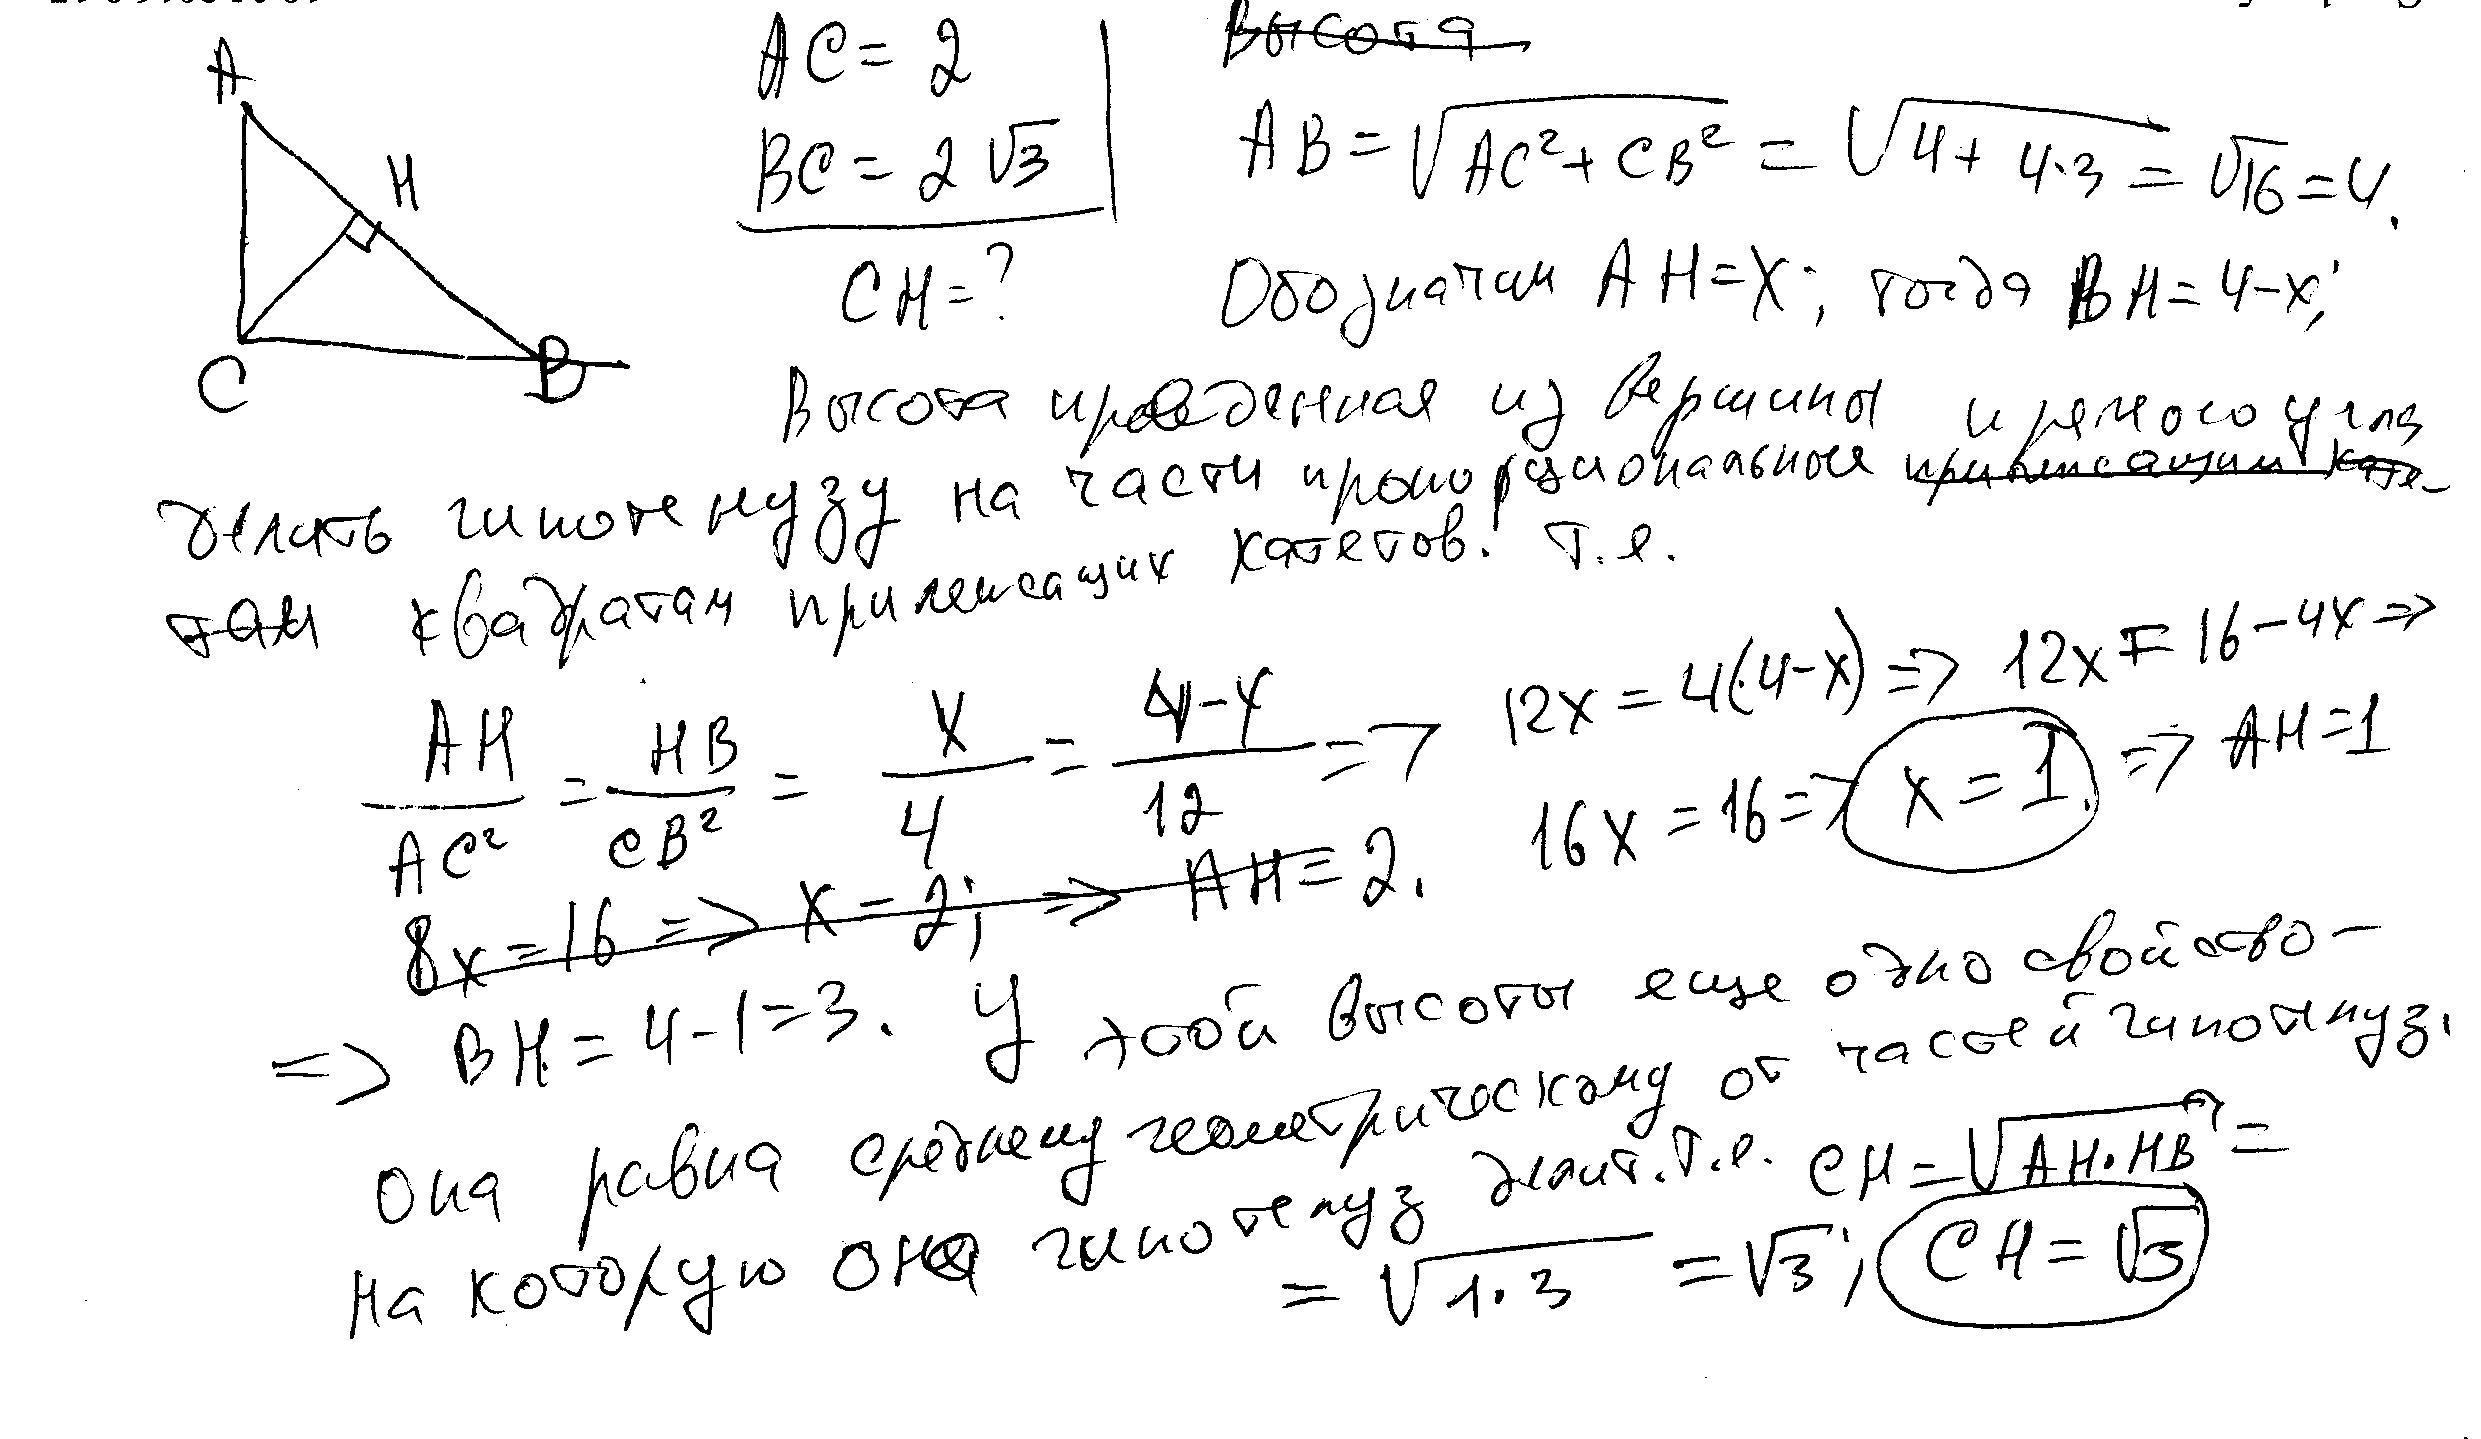 A
H
C
B
AC = 2
BC = 2√3
CH = ?
Высота
AB = √AC²+CB² = √4+4·3 = √16 = 4.
Обозначим AH = x; тогда BH = 4-x;
Высота проведенная из вершины прямого угла
делить гипотенузу на части пропорциональные прилежащим кате-
там квадратам прилежащих катетов. Т.е.
AH/AC² = HB/CB² = x/4 = 4-x/12 =>
12x = 4(4-x) => 12x = 16-4x =>
16x = 16 => x = 1. => AH = 1
8x = 16 => x = 2; => AH = 2.
=> BH = 4-1 = 3. У этой высоты еще одно свойство-
она равна среднему геометрическому от частей гипотенуз.
на которую она гипотенуз делит. Т.е. CH = √AH·HB =
= √1·3 = √3; CH = √3